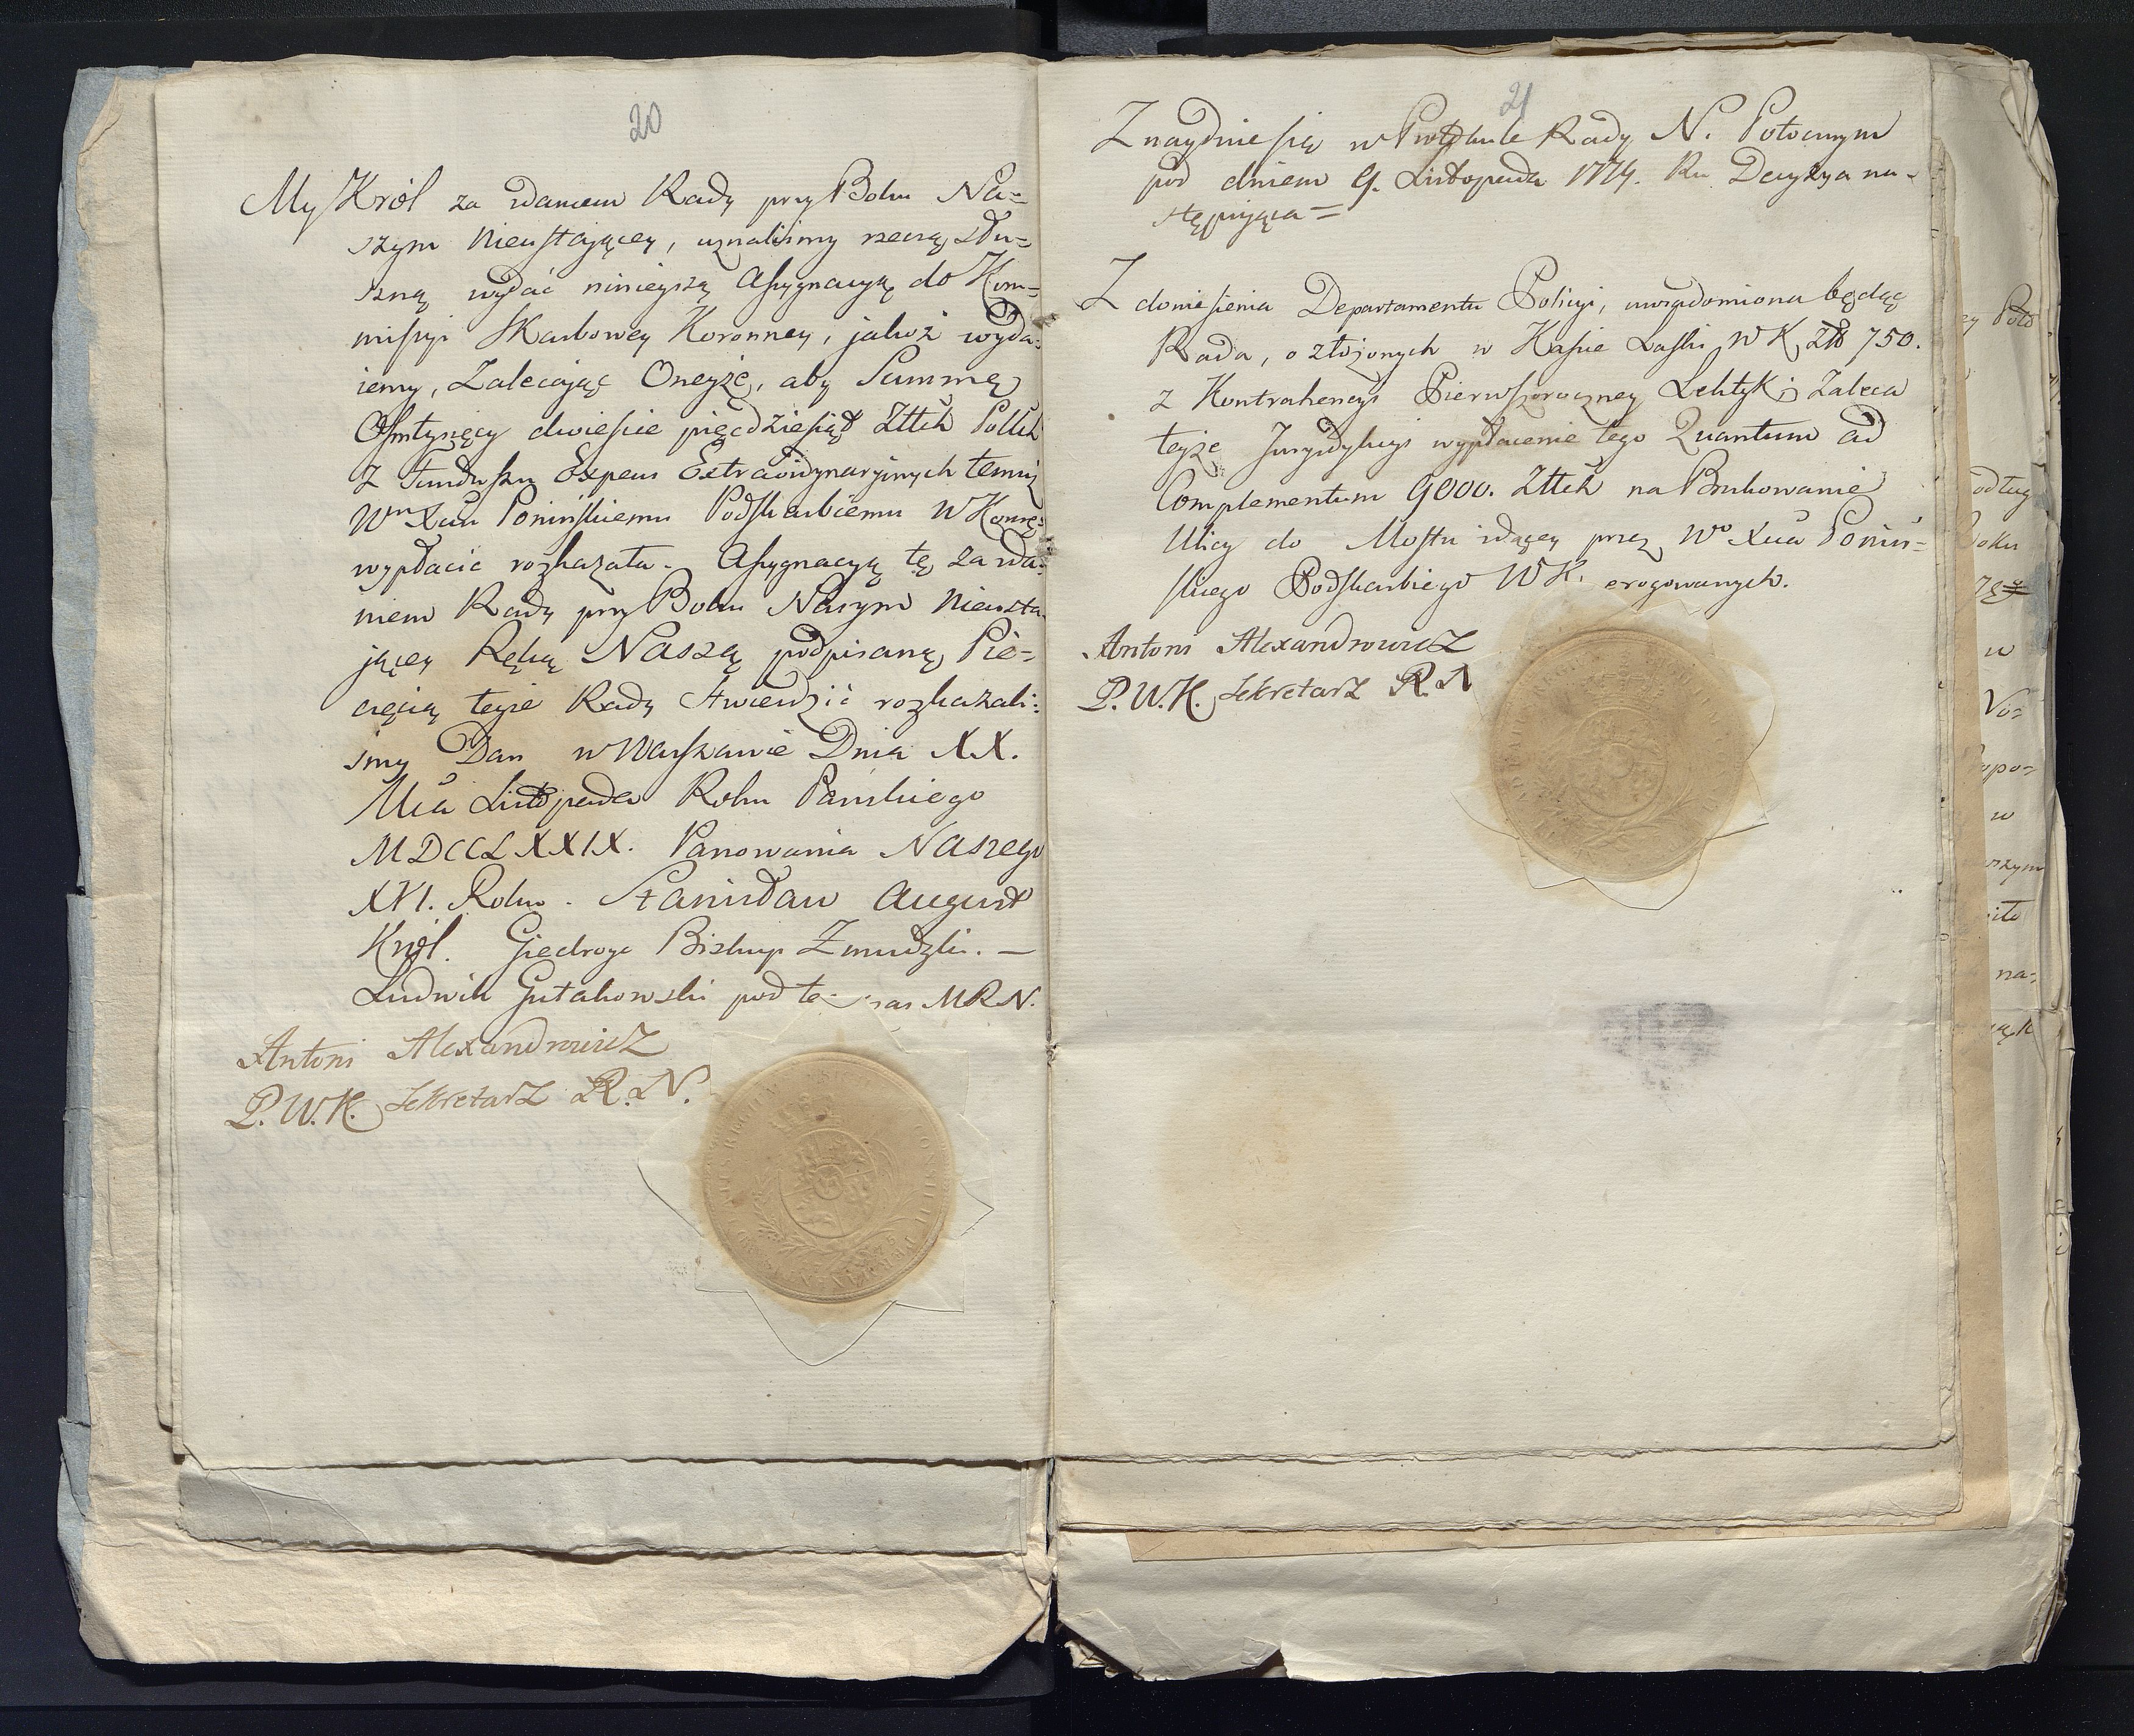 20
My Król za zdaniem Rady przy Boku Na=
szym Nieustaiącey, uznaliśmy rzeczą słu=
szną wydać ninieyszą Assygnacyą do Kom=
missyi Skarbowey Koronney, jakoż wyda=
iemy, Zalecając Oneyże, aby Summę
Ośmtysięcy dwieście pięćdziesiąt Złtch Polkch
z Funduszu Expens Extraordynaryinych temuż
Wmu Xciu Ponińskiemu Podskarbiemu W Koro=
wypłacić rozkazała. Assygnacyą tę za zda=
niem Rady przy Boku Naszym Nieusta
jącey Ręką Naszą podpisaną, Pie=
częcią teyże Rady stwierdzić rozkazali=
śmy Dan w Warszawie Dnia XX.
Mca Listopada Roku Pańskiego
MDCCLXXIX. Panowania Naszego
XVI. Roku. Stanisław August
Król. Giedroyc Biskup Zmudzki. —
Ludwik Gutakowski pod te- -zas MRN.
Antoni Alexandrowicz
P.W.K. Sekretarz R.N.
CONSILII PERMANENTIS
21
Znayduie się w Protokule Rady N. Potocznym
pod dniem 9. Listopada 1779. Ru Decyzya na=
stępująca =
Z doniesienia Departamentu Policyi, uwiadomiona będąc
Rada, o złożonych w Kassie Laski W K, Zł 750.
z Kontrahencyi Pierwszoroczney Lektyk; Zaleca
teyże Juryzdykcyi wypłacenie tego Quantum ad
Complementum 9000. Złtch na Brukowanie
Ulicy do Mostu idącey przez Wo Xcia Poniń=
skiego Podskarbiego W K. erogowanych.
Antoni Alexandrowicz
P.W.K. Sekretarz R.N